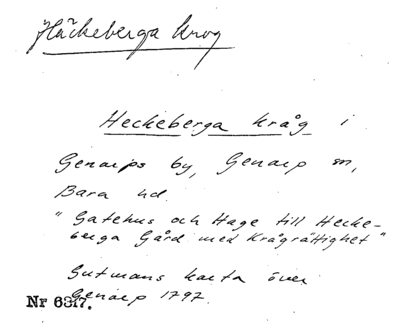 Häckeberga Krog
Heckeberga kråg i
Genarps by, Genarp sn,
Bara hd.
"Gatehus och Hage till Hecke-
berga Gård med Krågrättighet"
Gutmans karta över
Genarp 1797.
Nr 6317.